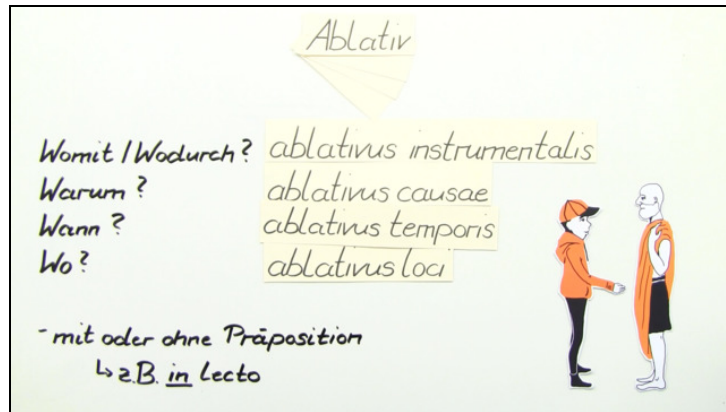 Ablativ
Womit / Wodurch? ablativus instrumentalis
Warum? ablativus causae
Wann? ablativus temporis
Wo? ablativus loci
- mit oder ohne Präposition
↳ z.B. in lecto